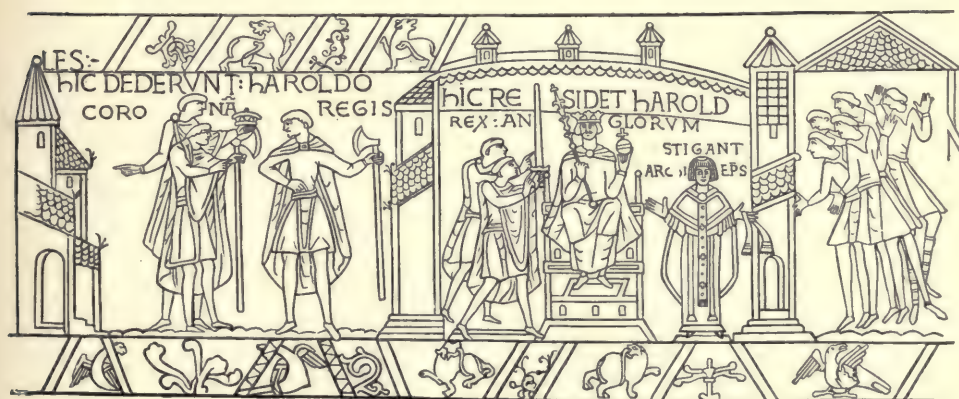 LES:-
hIC DEDERVNT: hAROLDO
CORO NÃ REGIS
hIC RE SIDET hAROLD
REX: AN GLORVM
STIGANT
ARChI EP̄S